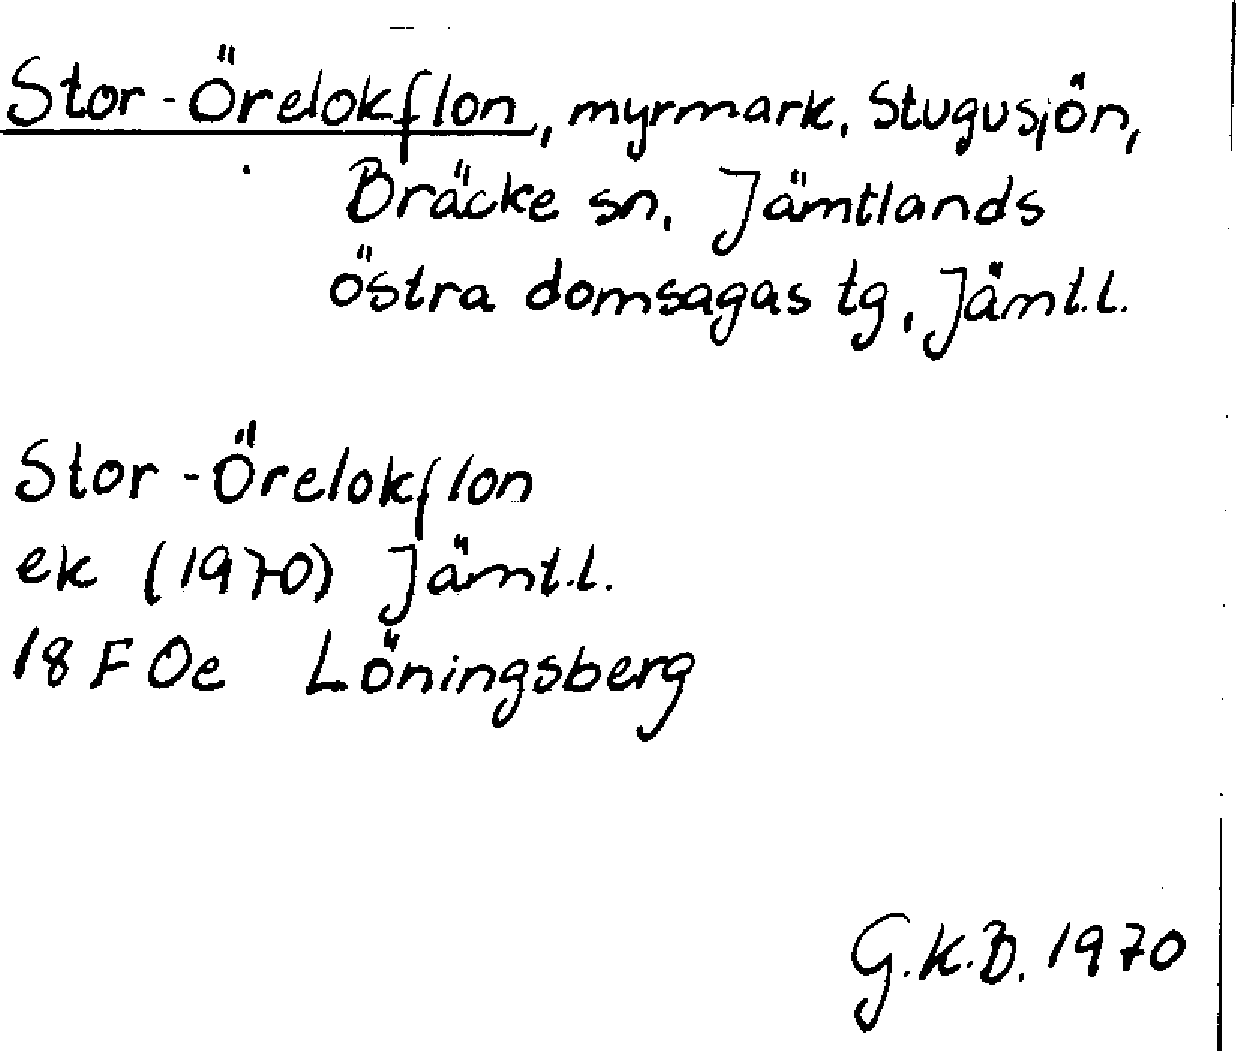 Stor-Örelokflon, myrmark, Stugusjön,
Bräcke sn, Jämtlands
östra domsagas tg, Jämt.l.
Stor-Örelokflon
ek (1970) Jämt.l.
18 F Oe Löningsberg
G.K.B. 1970